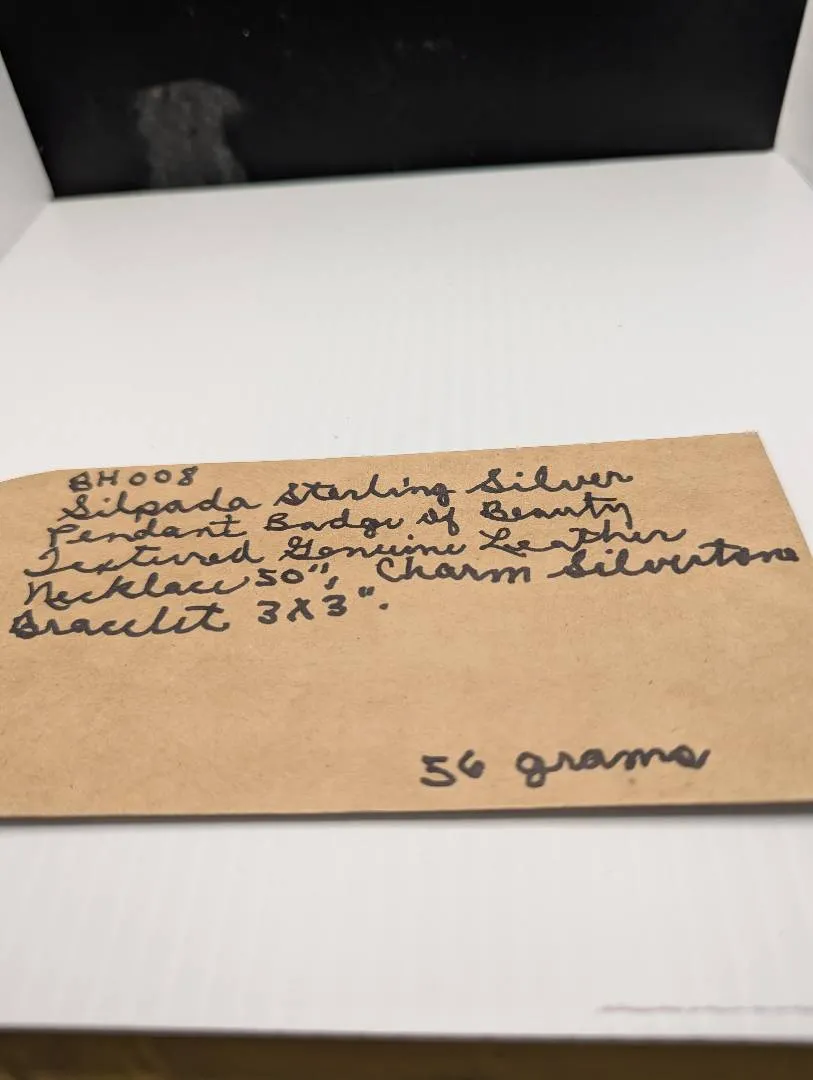 BH008
Silpada Sterling Silver
Pendant Badge of Beauty
Textured Genuine Leather
Necklace 50", Charm Silvertone
Bracelet 3X3".
56 grams